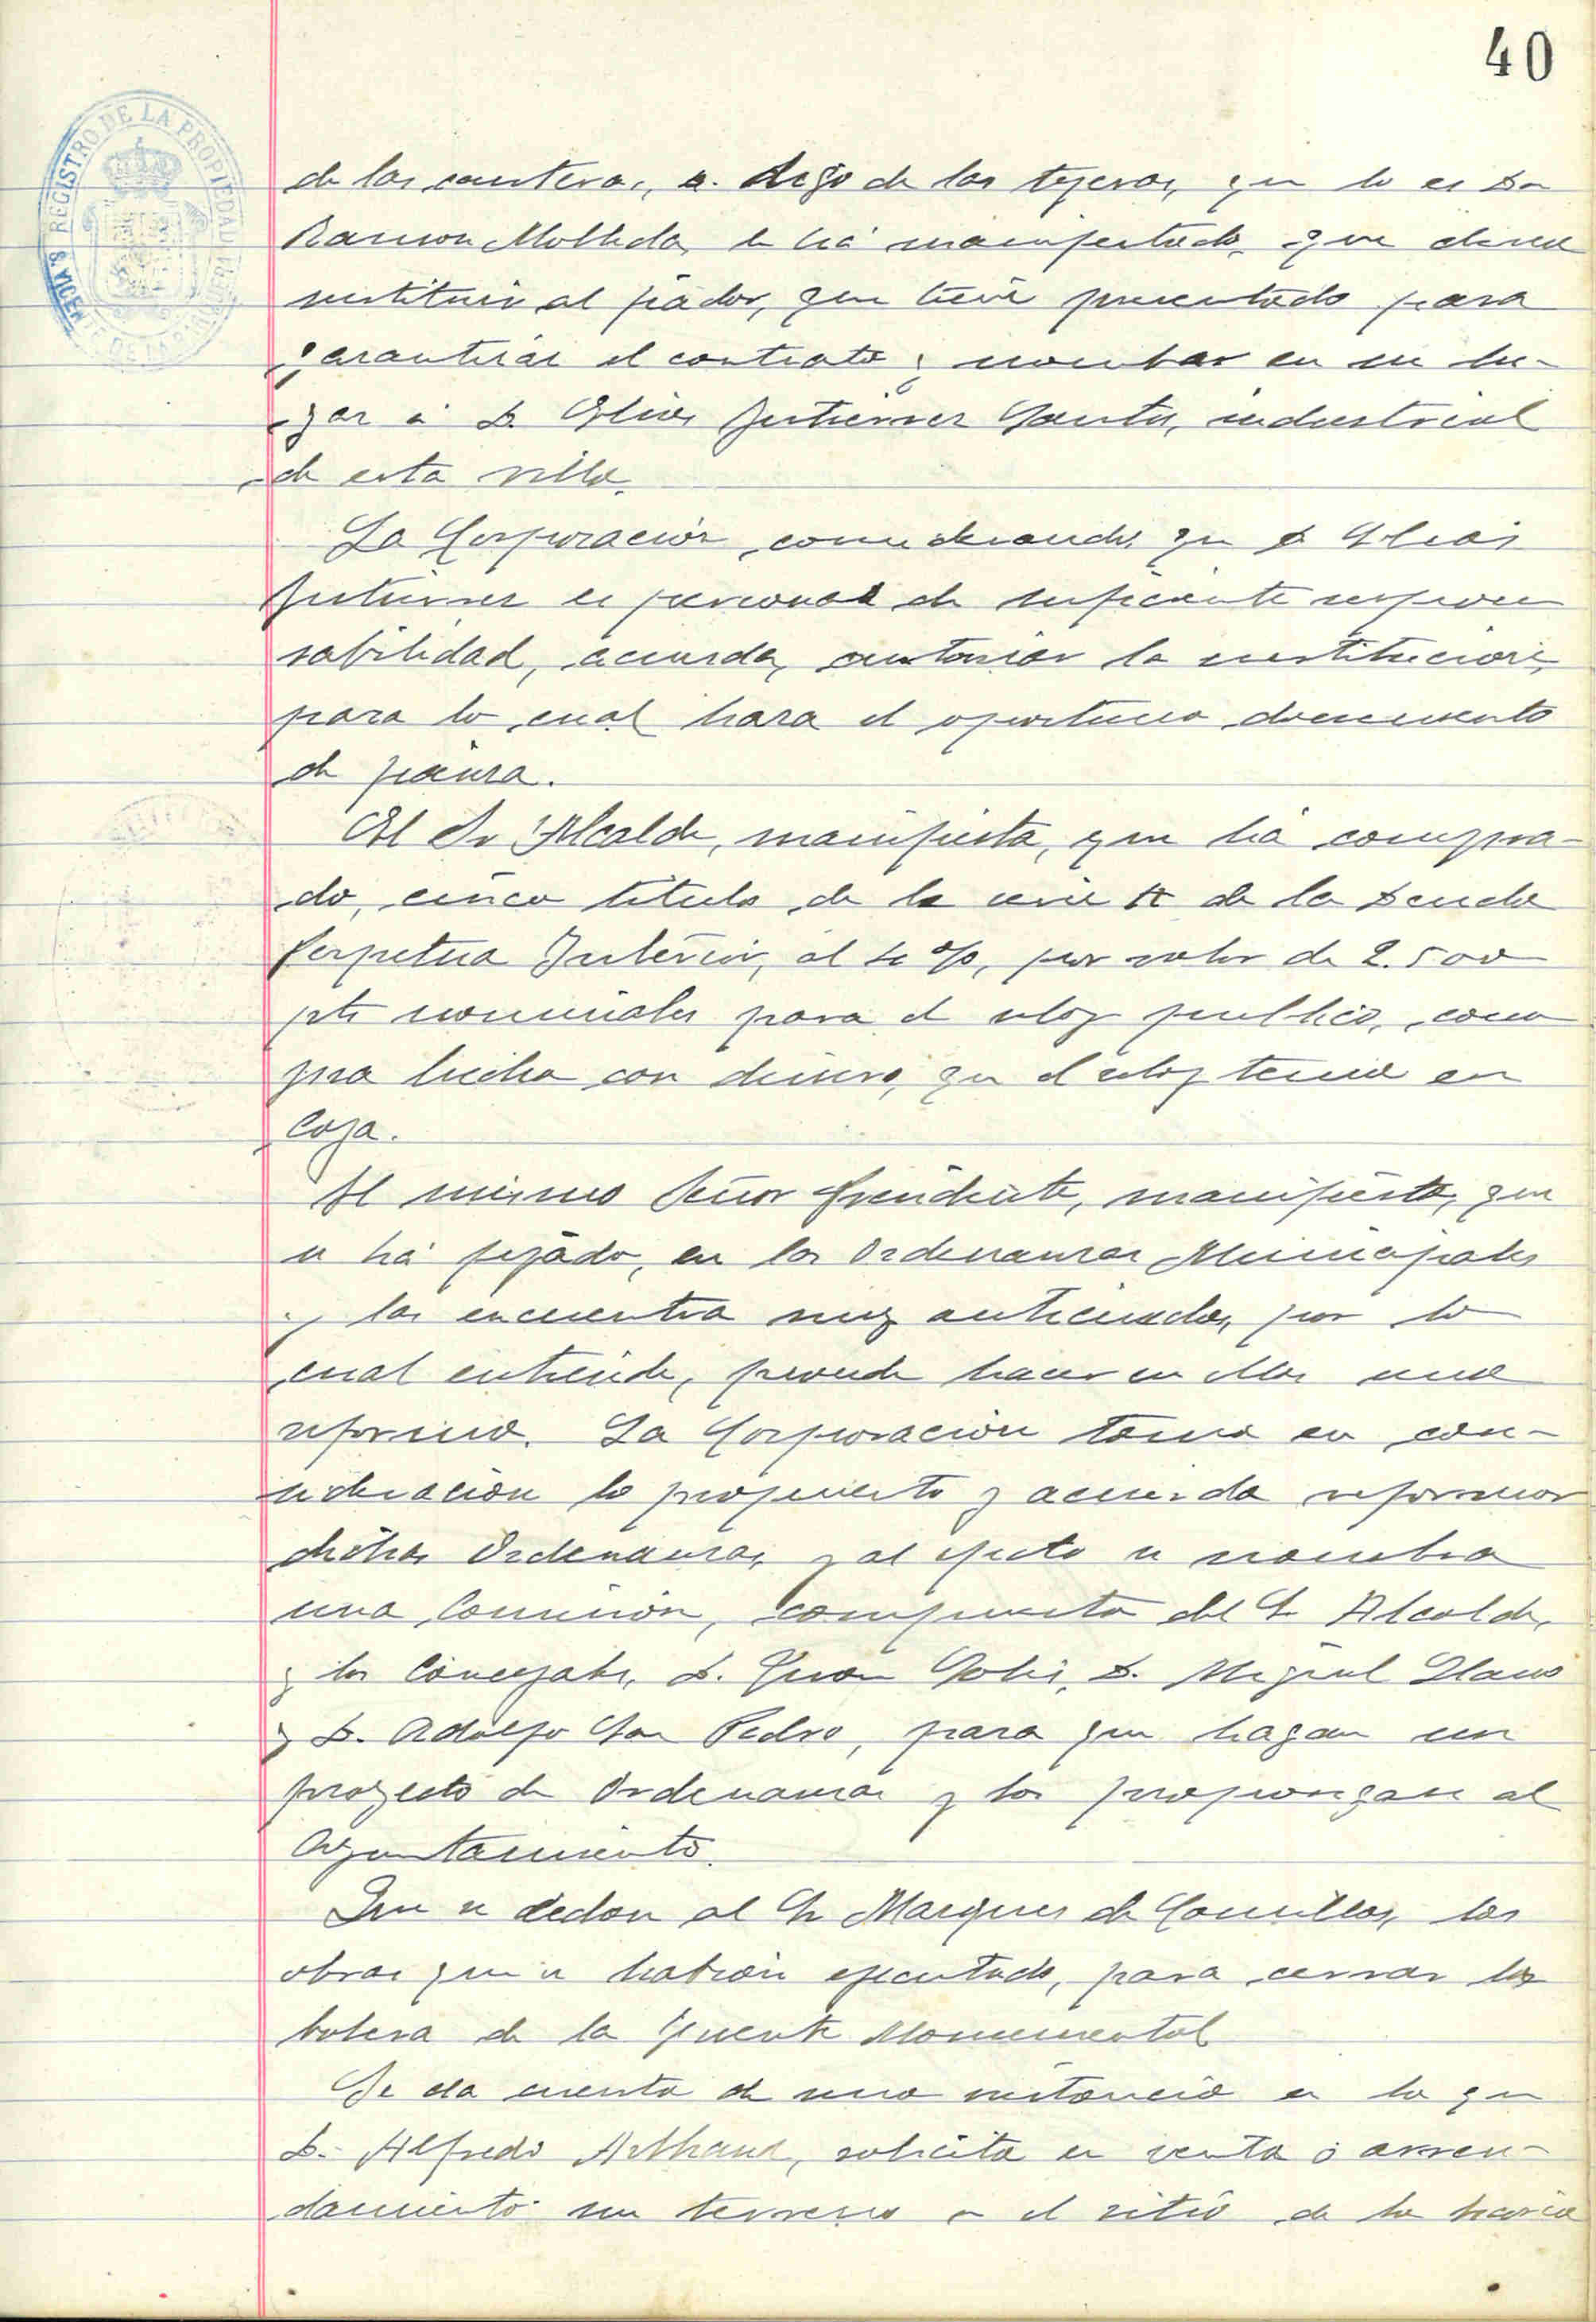 40
REGISTRO DE LA PROPIEDAD
S. VICENTE DE LA BARQUERA
de las canteras, a. dego de las tejeras, que lo es Dn
Ramon Molleda, le há manifestado, que desea
sustituir al fiador, que tiene presentado para
garantizar el contrato y nombar en su lu-
gar á D. Elias Gutierrez Santos, industrial
de esta villa.
La Corporación, considerando, que D Elias
Gutierrez es persona de suficiente respon
sabilidad, acuerda, autorizar la sustitucion,
para lo cual hara el oportuno documento
de fianza.
El Sr Alcalde, manifiesta, que há compra-
do, cinco titulos de la serie A de la Deuda
Perpetua Interior, al 4 %, por valor de 2.500
pts nominales para el reloj publico, com
pra hecha con dinero, que el reloj tenia en
Caja.
El mismo Señor Presidente, manifiesta, que
se há fijado, en las Ordenanzas Municipales
y las encuentra muy anticuadas, por lo
cual entiende, procede hacer en ellas una
reforma. La Corporación toma en con-
sideración lo propuesto y acuerda reformar
dichas Ordenanzas, y al efecto se nombra
una Comisión, compuesta del Sr Alcalde,
y los Concejales, D. Juan D. Miguel Llano
y D. Adolfo San Pedro, para que hagan un
proyecto de Ordenanzas y las propongan al
Ayuntamiento.
Que se cedan al Sr Marques de Comillas, las
obras que se habrán ejecutado, para cerrar la
bolera de la Fuente Monumental
Se da cuenta de una instancia en la que
D. Alfredo solicita en venta ó arren-
damiento un terreno en el sitio de la